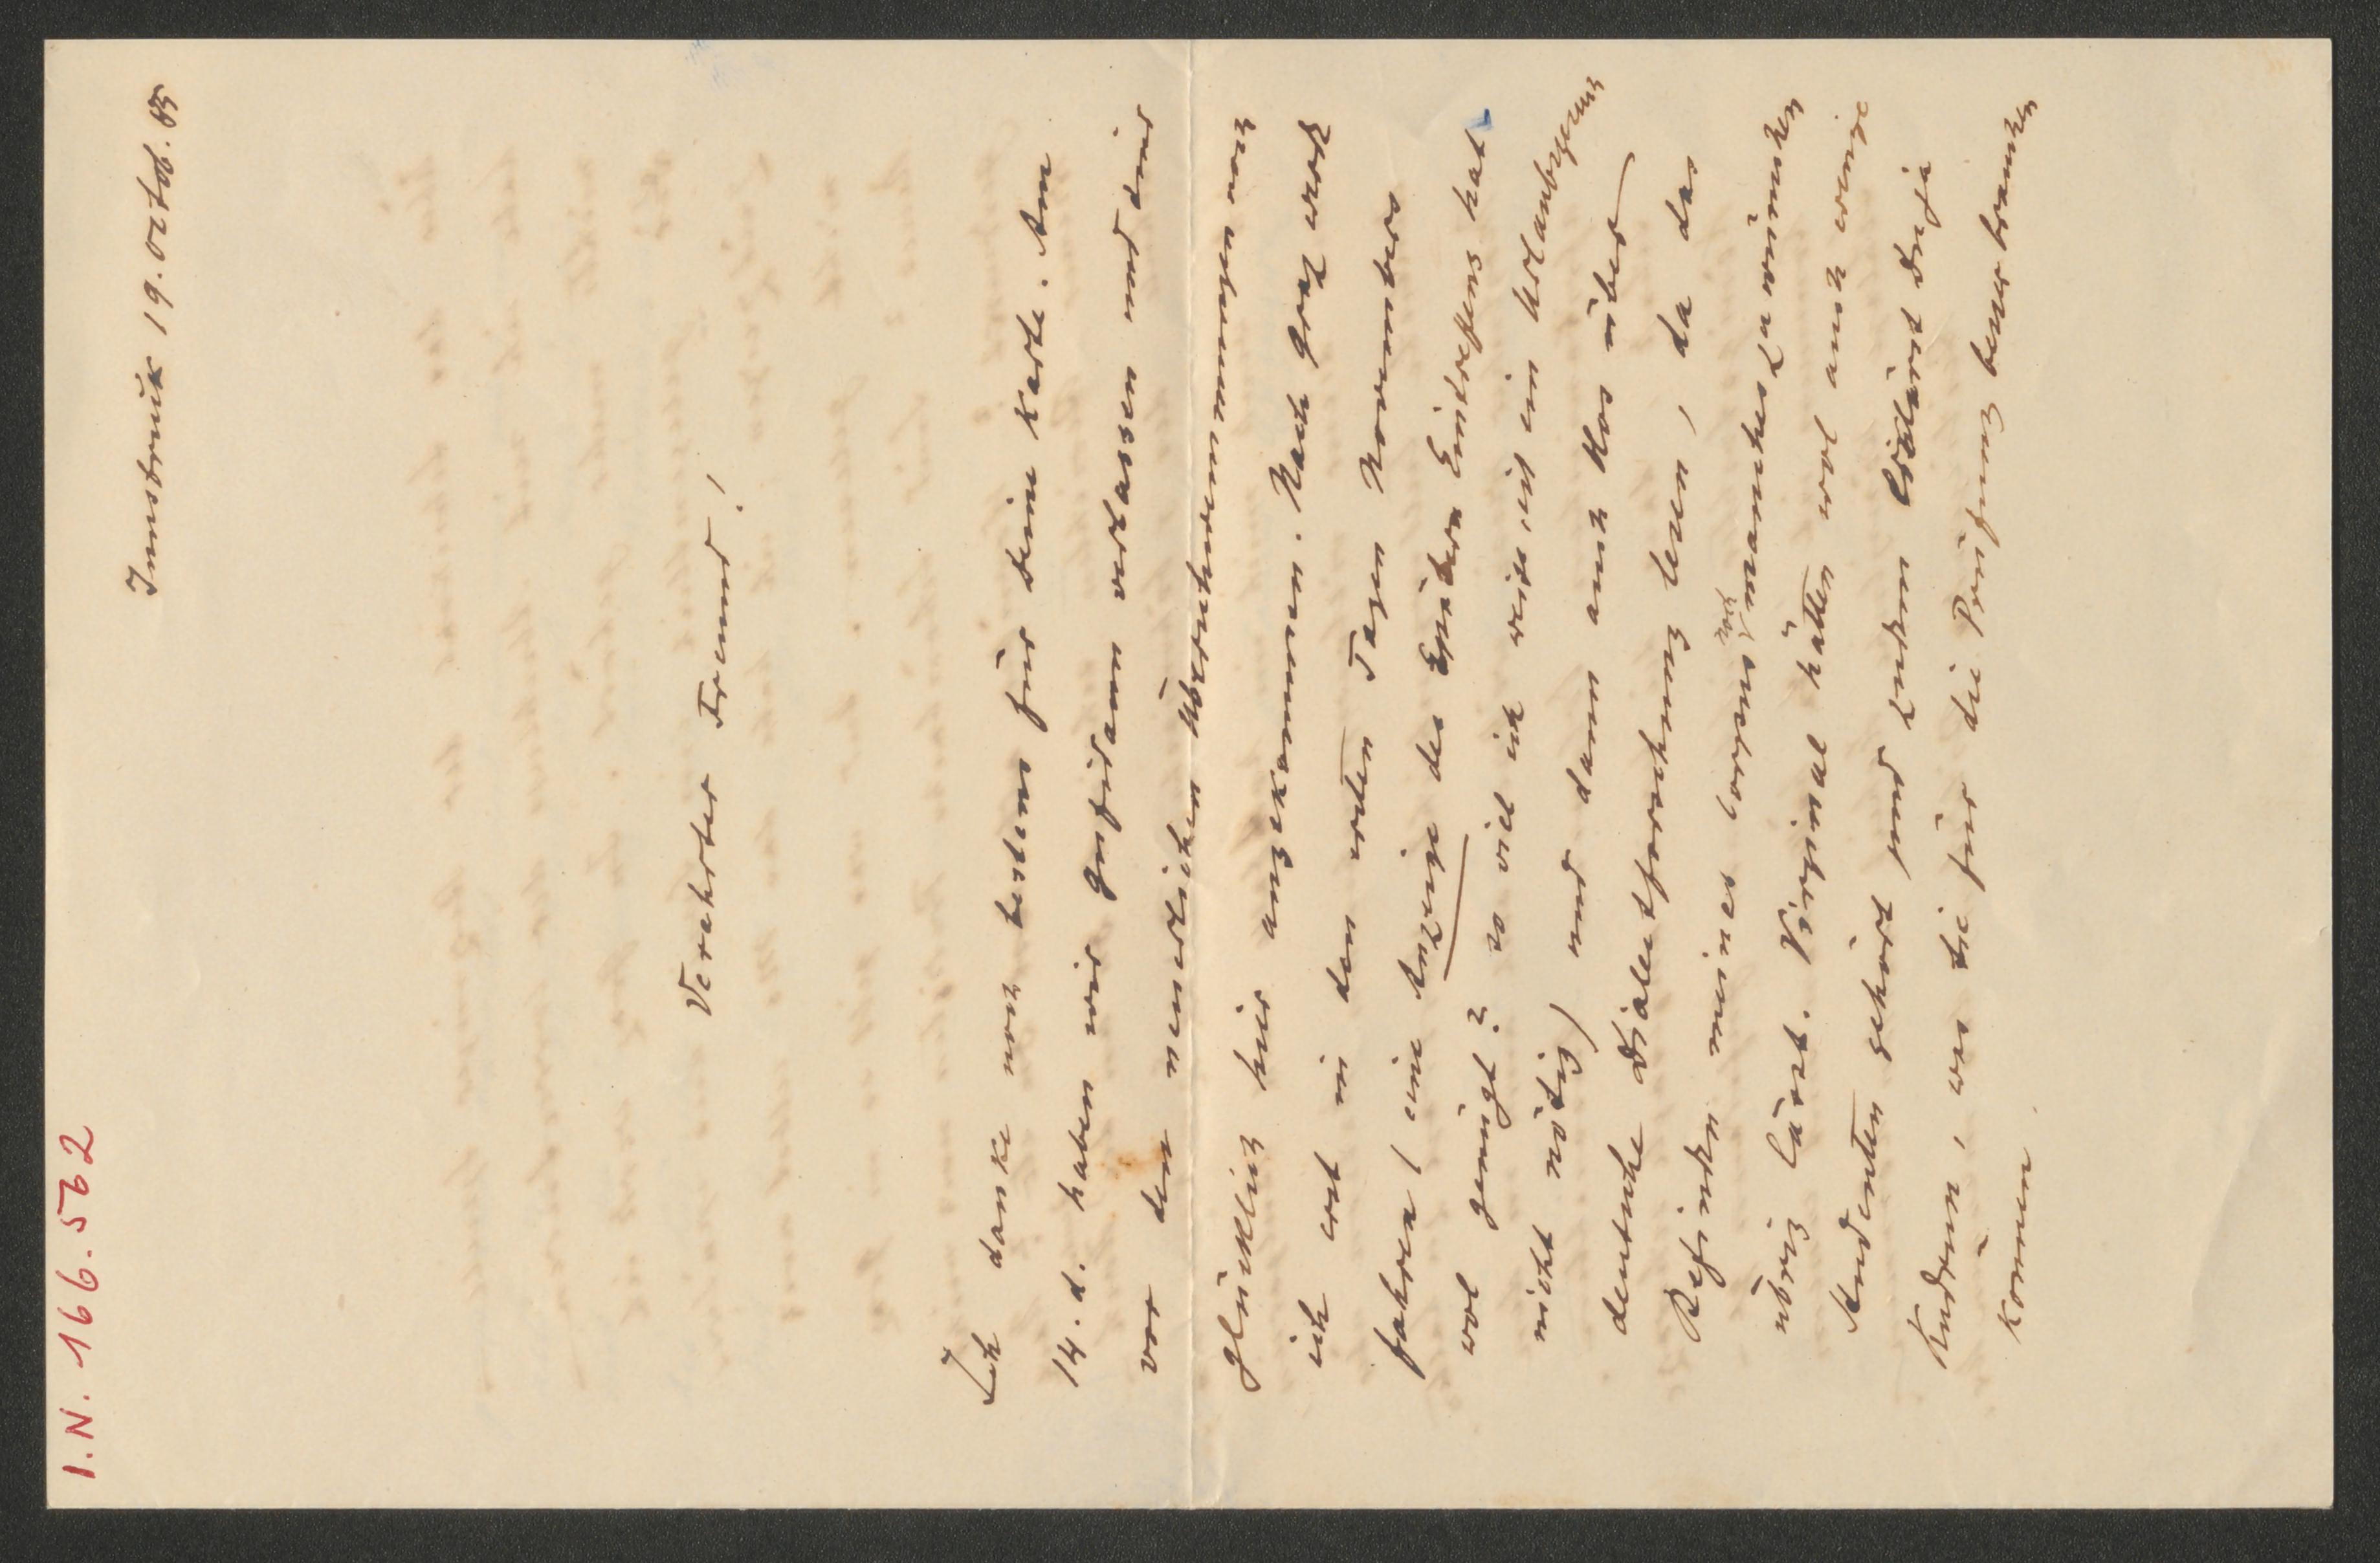 I.N. 166.562
Innsbruck 19. octob. 85
Verehrter Freund!
Ich danke noch bestens für deine Karte. Am
14. d. haben wir Gufidaun verlassen und sind
vor den neuerlichen Überschwemmungen noch
glücklich hier angekommen. Nach Graz werde
ich erst in den ersten Tagen Novembers
fahren (eine Anzeige des spätern Eintreffens hat
wol genügt? so viel ich weiss ist ein Urlaubgesuch
nicht nötig) und dann auch blos über
deutsche Dialectforschung lesen, da das
Befinden meines corpus noch manches zu wünschen
übrig lässt. Virginal hätten wol auch wenige
Studenten gehört und zudem liest du ja
Kudrun, was sie für die Prüfung besser brauchen
können.